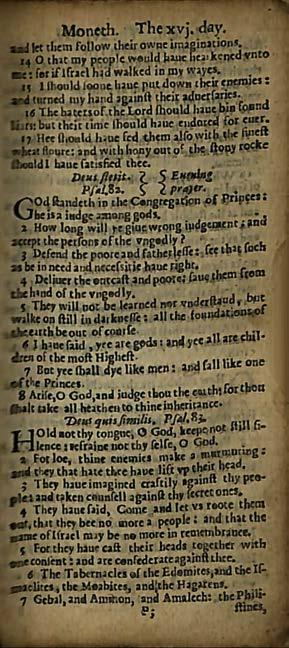 Moneth. The xvj. day.
and let them follow their owne imaginations.
14 O that my people would haue hearkened vnto
me: for if Israel had walked in my wayes,
15 I should soone haue put down their enemies:
and turned my hand against their aduersaries.
16 The haters of the Lord should haue bin found
liars: but their time should haue endured for euer.
17 Hee should haue fed them also with the finest
wheat floure: and with hony out of the stony rocke
should I haue satisfied thee.
Deus stetit. Euening
Psal. 82. prayer.
God standeth in the Congregation of Princes:
he is a iudge among gods.
2 How long will ye giue wrong iudgement: and
accept the persons of the vngodly?
3 Defend the poore and fatherlesse: see that such
as be in need and necessitie haue right.
4 Deliuer the outcast and poore: saue them from
the hand of the vngodly.
5 They will not be learned nor vnderstand, but
walke on still in darknesse: all the foundations of
the earth be out of course.
6 I haue said, yee are gods: and yee all are chil-
dren of the most Highest.
7 But yee shall dye like men: and fall like one
of the Princes.
8 Arise, O God, and iudge thou the earth: for thou
shalt take all heathen to thine inheritance.
Deus quis similis. Psal. 83.
Hold not thy tongue, O God, keepe not still si-
lence: refraine not thy selfe, O God.
2 For loe, thine enemies make a murmuring:
and they that hate thee haue lift vp their head.
3 They haue imagined craftily against thy peo-
ple: and taken counsell against thy secret ones.
4 They haue said, Come and let vs roote them
out, that they bee no more a people: and that the
name of Israel may be no more in remembrance.
5 For they haue cast their heads together with
one consent: and are confederate against thee.
6 The Tabernacles of the Edomites, and the Is-
maelites, the Moabites, and the Hagarens.
7 Gebal, and Ammon, and Amalech: the Phili-
stines,